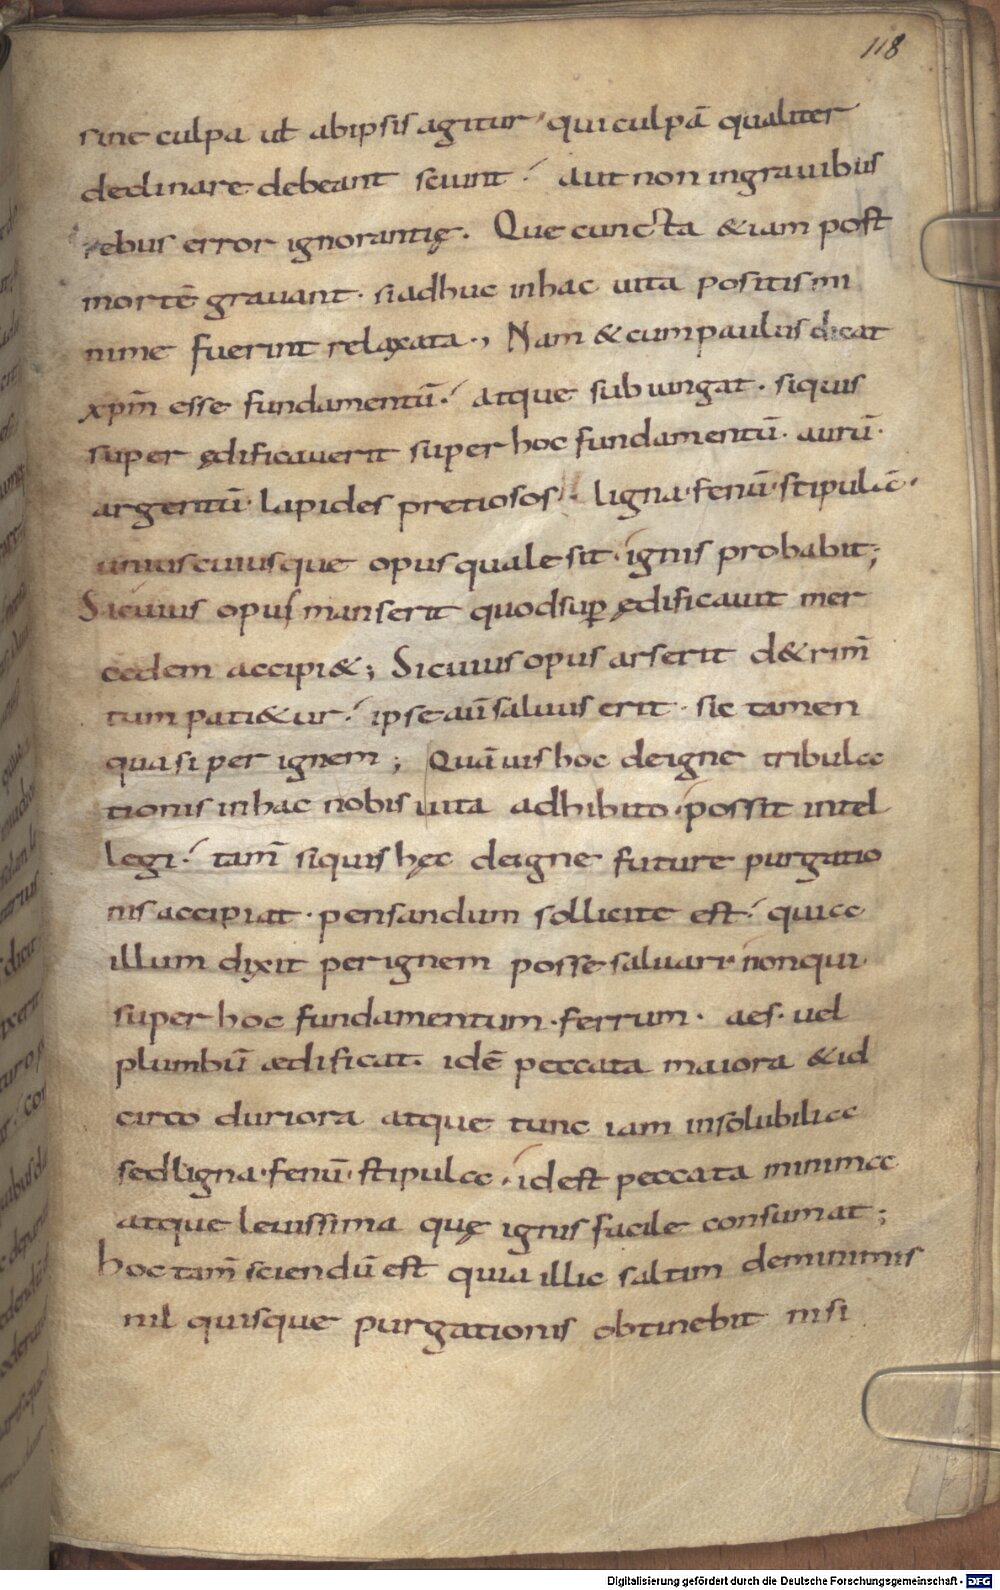 118
sine culpa ut̄ abipsis agitur qui culpā qualiter
declinare debeant sciunt aut non ingrauibus
rebus error ignorantię. Que cuncta &iam post
mortē grauant. siadhuc inhac uita positis mi
nime fuerint relaxata., Nam & cum paulus dicat
xp̄m esse fundamentū. atque subiungat. siquis
super ędificauerit super hoc fundamentū. aurū.
argentū. lapides pretiosos. ligna. fenū. stipulā.
uniuscuiusque opus quale sit. ignis probabit;
Sicuius opus manserit quod sup̱ ędificauit mer
cedem accipi&; Sicuius opus arserit d&rim̄
tum pati&ur. ipse aū saluus erit. sic tamen
quasi per ignem; Quāuis hoc deigne tribula
tionis inhac nobis uita adhibito. possit intel
legi. tam̄ siquis hęc deigne future purgatio
nis accipiat. pensandum sollicite est. quia
illum dixit per ignem posse saluari nonqui
super hoc fundamentum. ferrum. aes. uel
plumbū ædificat. idē peccata maiora &id
circo duriora atque tunc iam insolubilia
sed ligna. fenū. stipula. idest peccata minima
atque leuissima quę ignis facile consumat;
hoc tam̄ sciendū est quia illic saltim deminimis
nil quisque purgationis obtinebit nisi
Digitalisierung gefördert durch die Deutsche Forschungsgemeinschaft - DFG